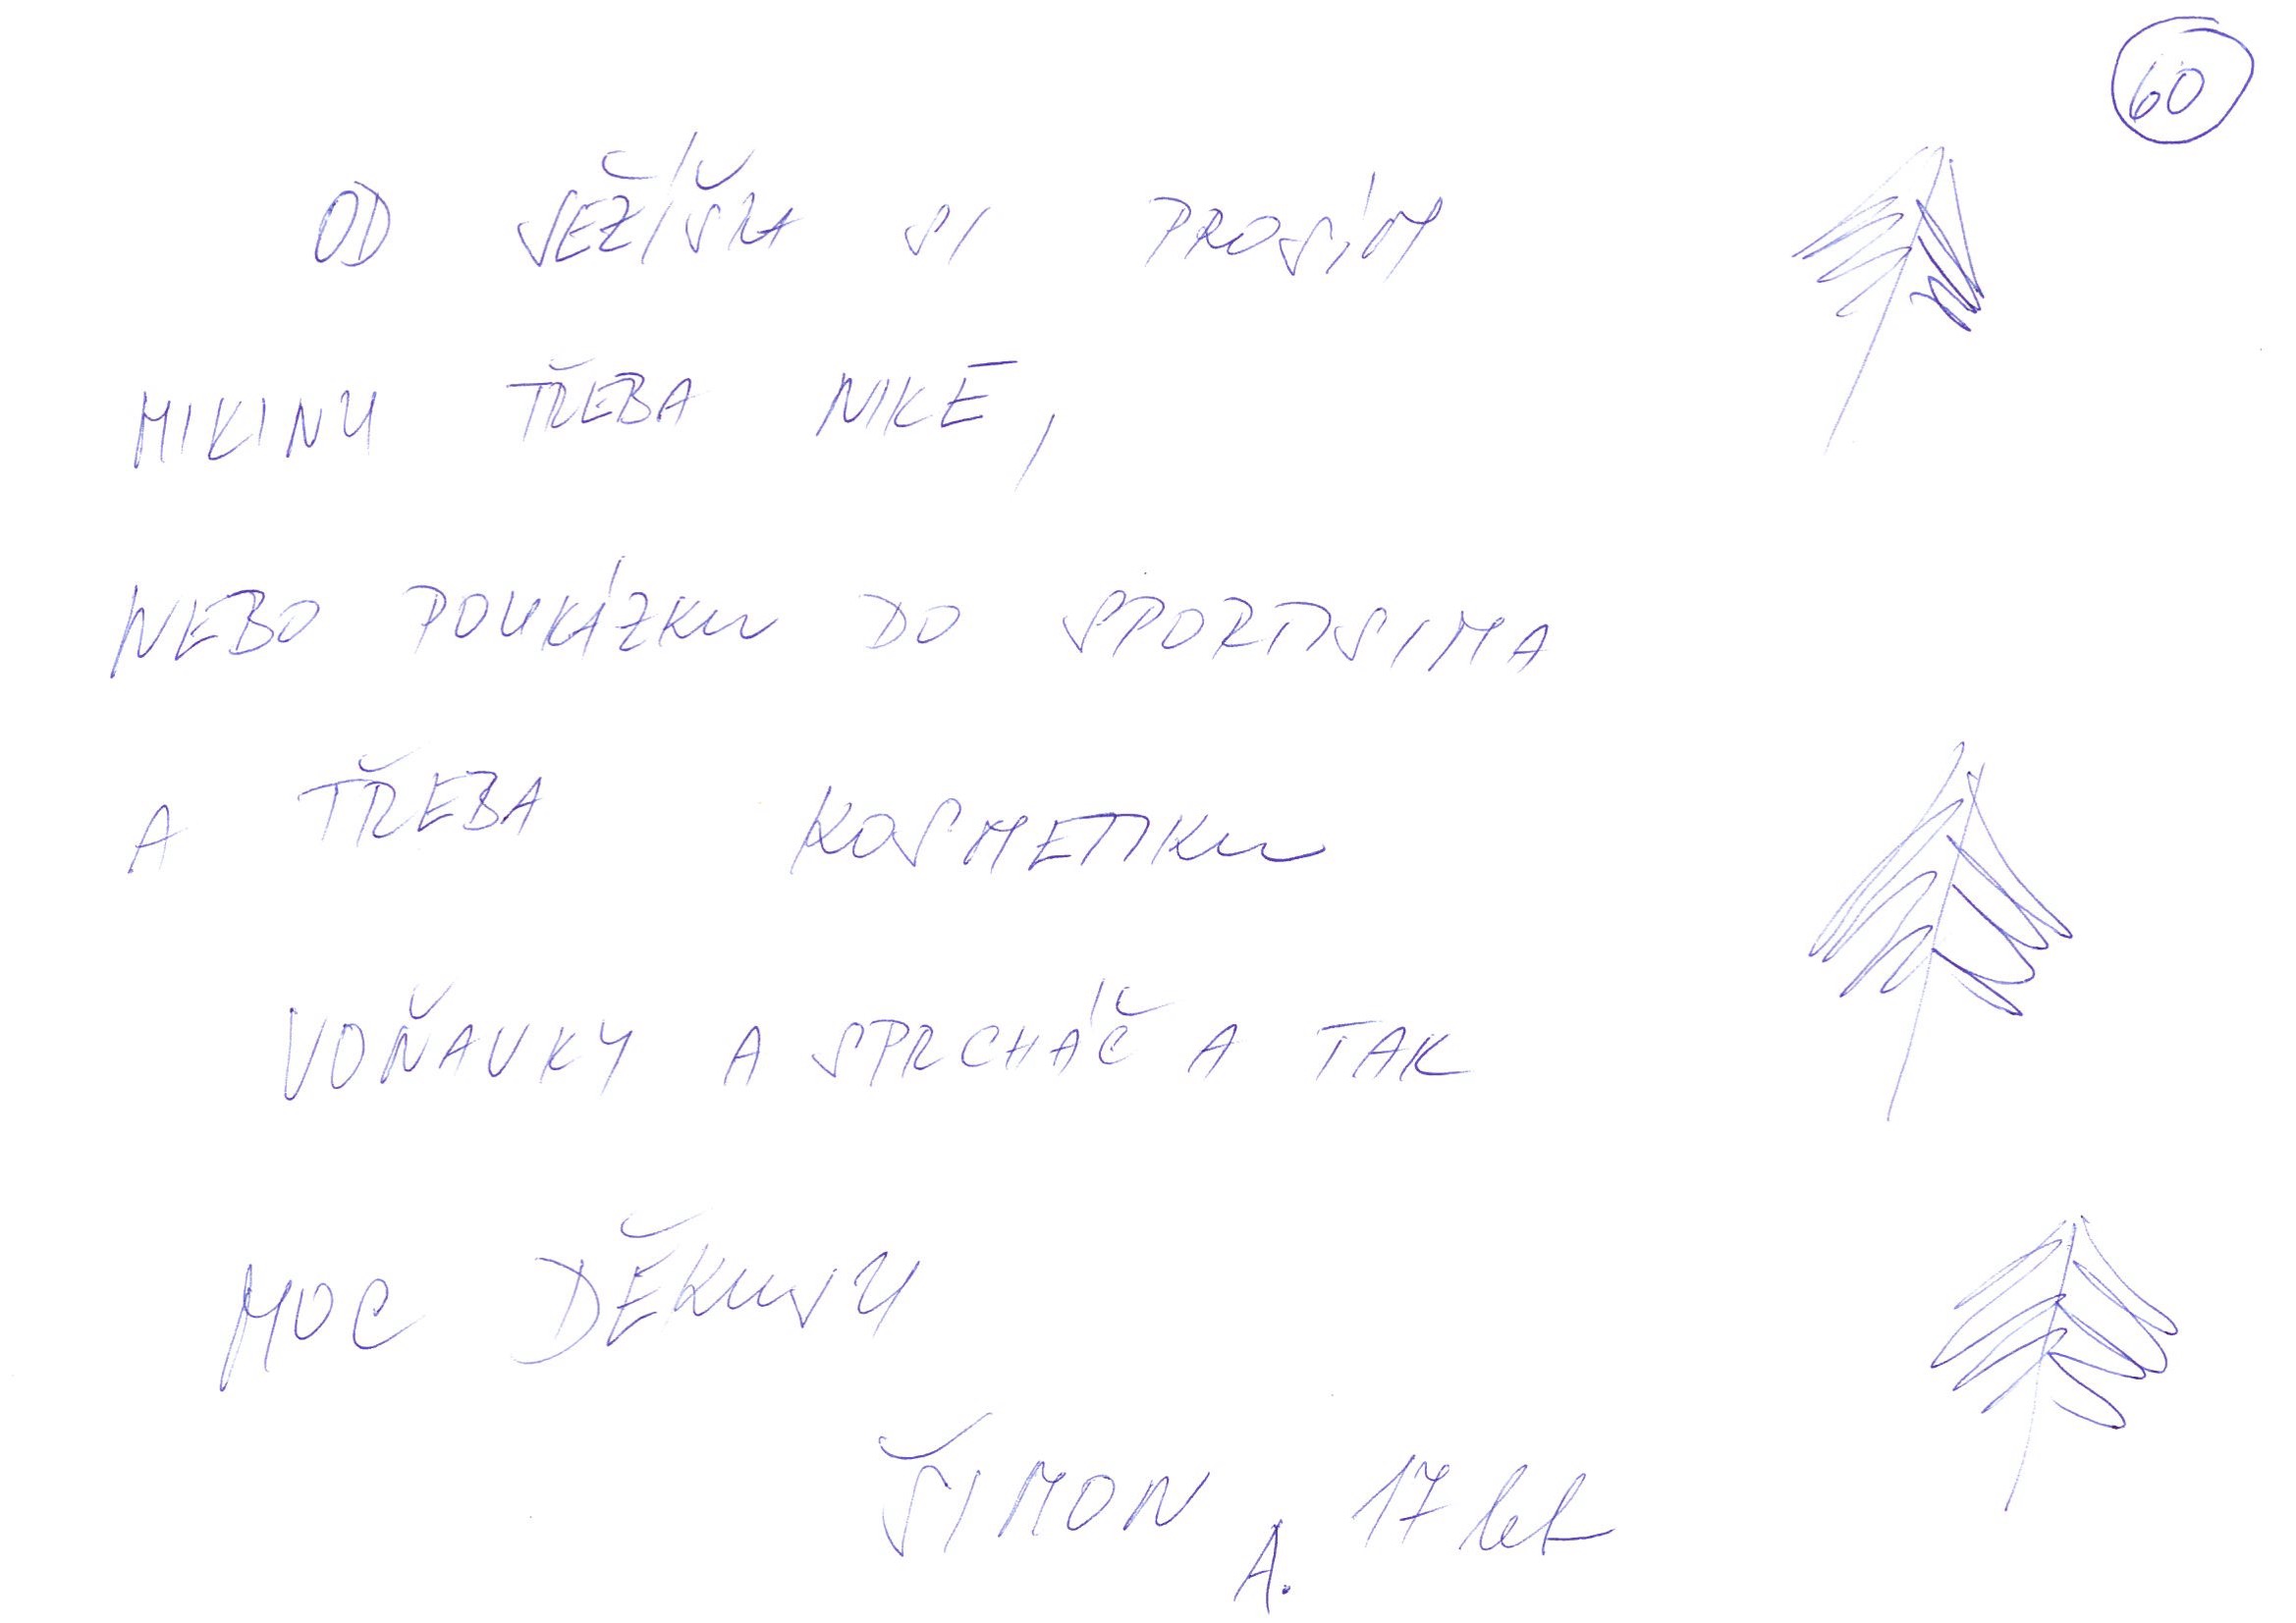 60
OD JEŽÍŠKA SI PROSÍM
MIKINU TŘEBA NIKE,
NEBO POUKÁZKU DO SPORTISIMA
A TŘEBA KOSMETIKU
VOŇAVKY A SPRCHÁČ A TAK
MOC DĚKUJU
ŠIMON A. 17 let